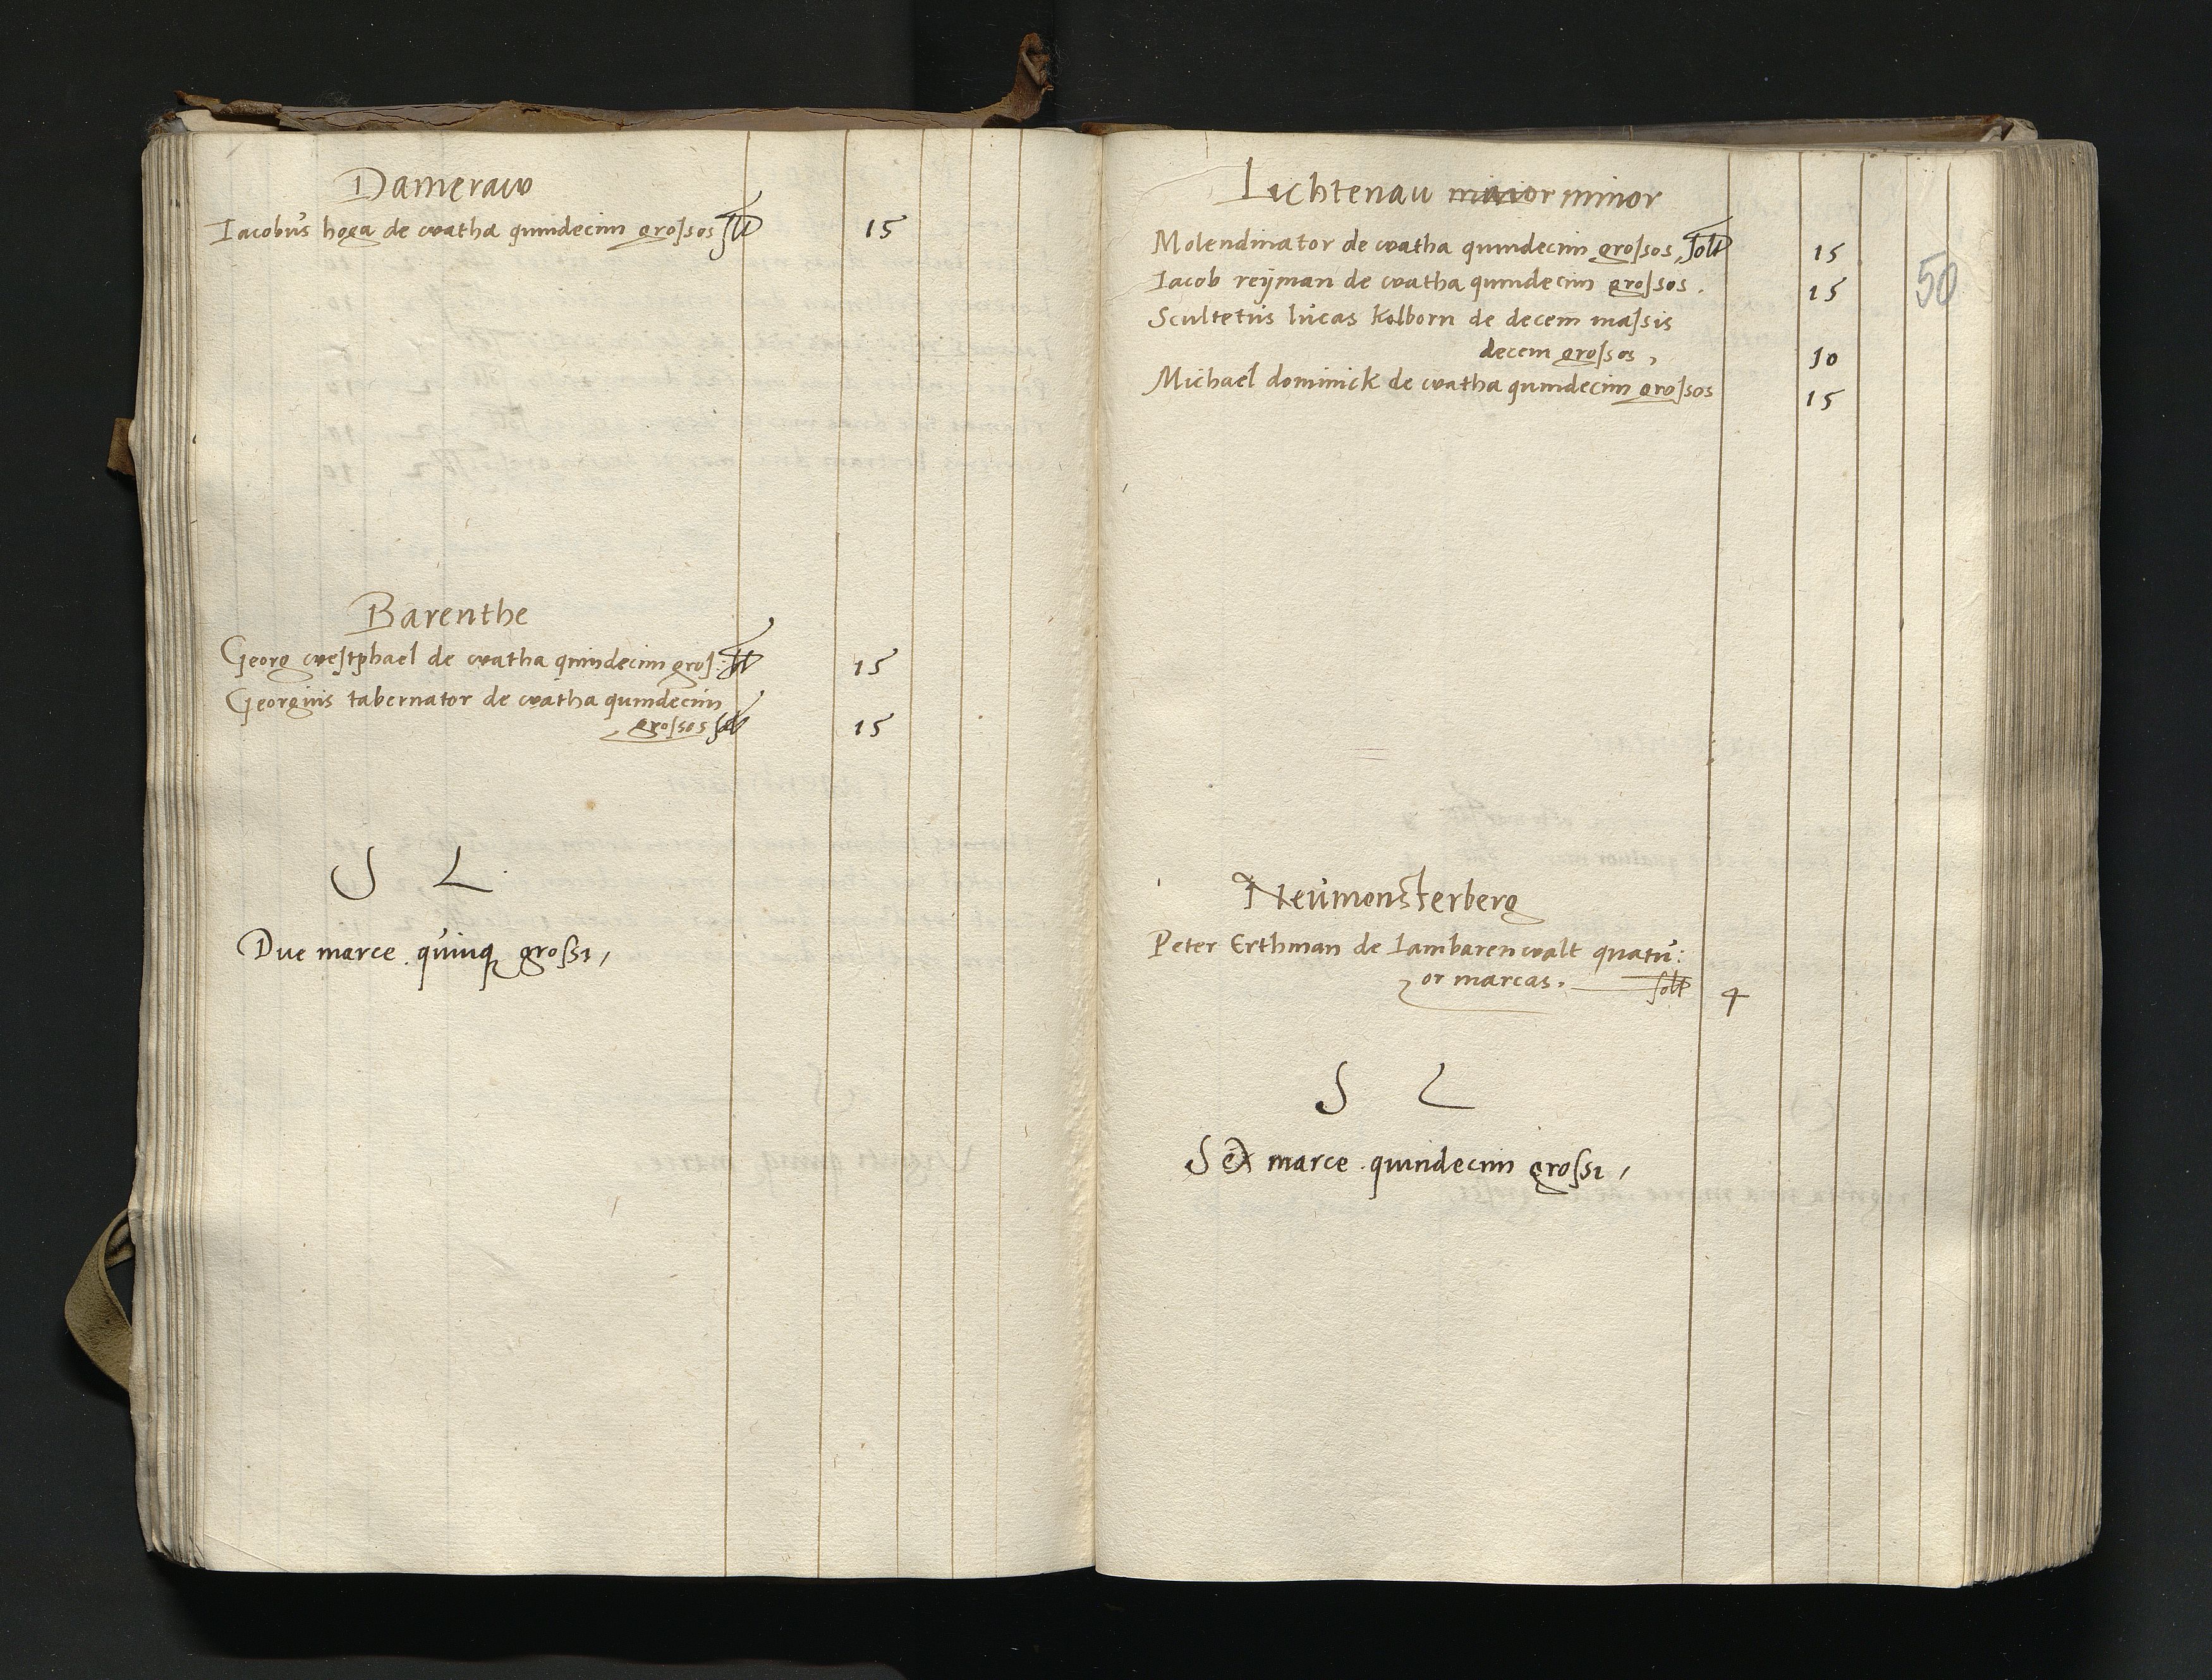 Dameraw
Iacobus hoga de watha quindecim grossos solt 15
Barenthe
Georg westphael de watha quindecim gros: solt 15
Georgius tabernator de watha quindecim
grossos solt 15
S L
Due marce quinq grossi,
Lichtenau minor minor
Molendinator de watha quindecim grossos, solt 15
Iacob reÿman de watha quindecim grossos. 15
50
Scultetus lucas Kolborn de decem massis
decem grossos, 10
Michael dominick de watha quindecim grossos 15
Neumonsterberg
Peter Erthman de Iambarenwalt quatu:
or marcas. solt 4
S L
Sex marce quindecim grossi,